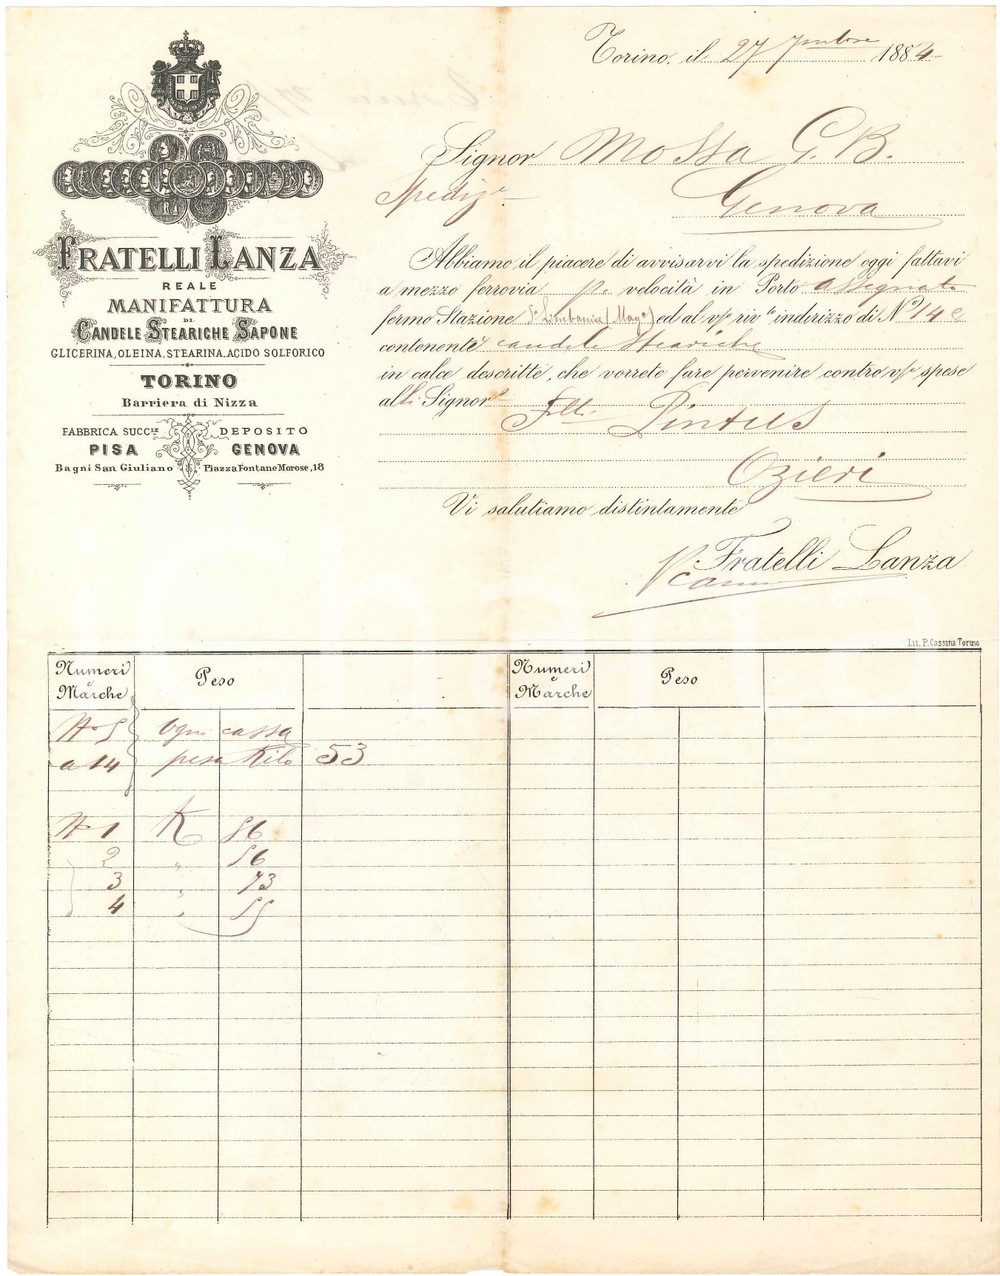 Torino, il 27 7mbre 1884
FRATELLI LANZA
REALE
MANIFATTURA
DI
CANDELE STEARICHE SAPONE
GLICERINA, OLEINA, STEARINA, ACIDO SOLFORICO
TORINO
Barriera di Nizza
FABBRICA SUCCLE
PISA
Bagni San Giuliano
DEPOSITO
GENOVA
Piazza Fontane Morose, 18
Signor Mossa G. B.
Spedize
Genova
Abbiamo il piacere di avvisarvi la spedizione oggi fattavi
a mezzo ferrovia pa velocità in Porto assegnato
fermo Stazione Sa Limbania (Mage) ed al v/o rivto indirizzo di No 14 C
contenenti candele steariche
in calce descritte, che vorrete fare pervenire contro v/e spese
alli Signori Flli Pintus
Ozieri
Vi salutiamo distintamente
p. Fratelli Lanza
Lit. P. Cassina Torino
Numeri e Marche Peso Numeri e Marche Peso
No 5 ogni cassa
a 14 pesa Kilo 53
No 1 K 56
2 " 56
3 " 73
4 " 55